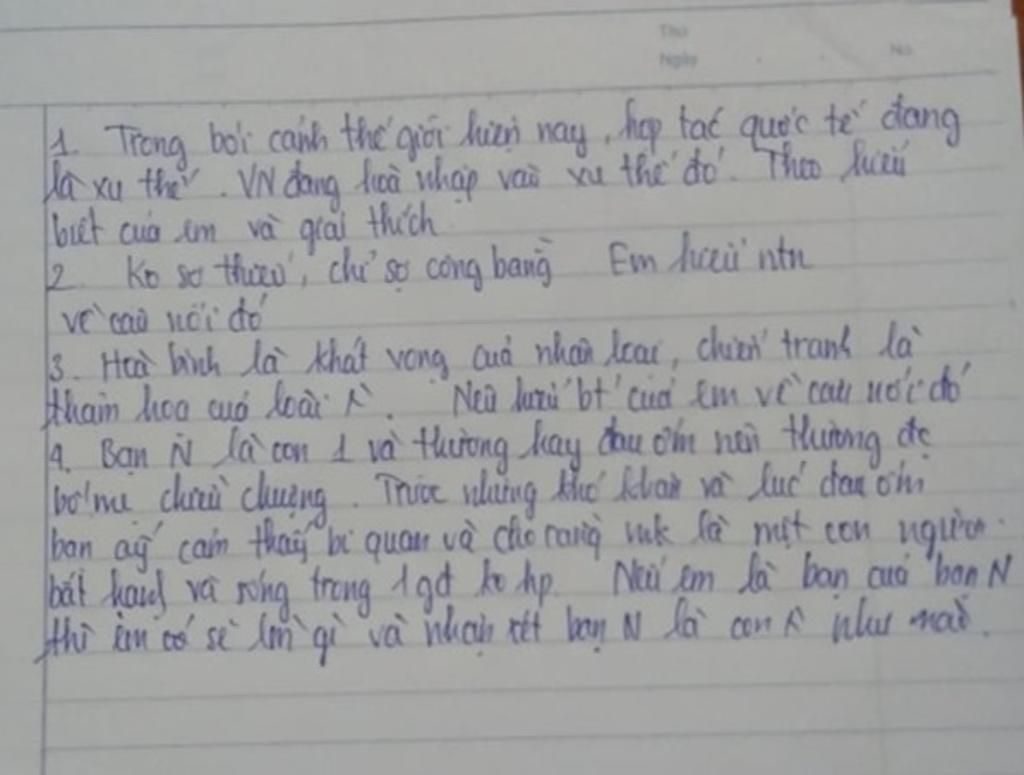 Thứ
Ngày No
1. Trong bối cảnh thế giới hiện nay, hợp tác quốc tế đang
là xu thế. VN đang hoà nhập vào xu thế đó. Theo hiểu
biết của em và giải thích.
2. Ko sợ thiếu, chỉ sợ công bằng Em hiểu ntn
về câu nói đó
3. Hoà bình là khát vọng của nhân loại, chiến tranh là
thảm hoạ của loài . Nêu hiểu bt của em về câu nói đó
4. Bạn N là con 1 và thường hay đau ốm nên thường đc
bố mẹ chiều chuộng. Trước những khó khăn và lúc đau ốm
bạn ấy cảm thấy bi quan và cho rằng mk là một con người
bất hạnh và sống trong 1 gđ ko hp. Nếu em là bạn của bạn N
thì em có sẽ làm gì và nhận xét bạn N là con như nào.